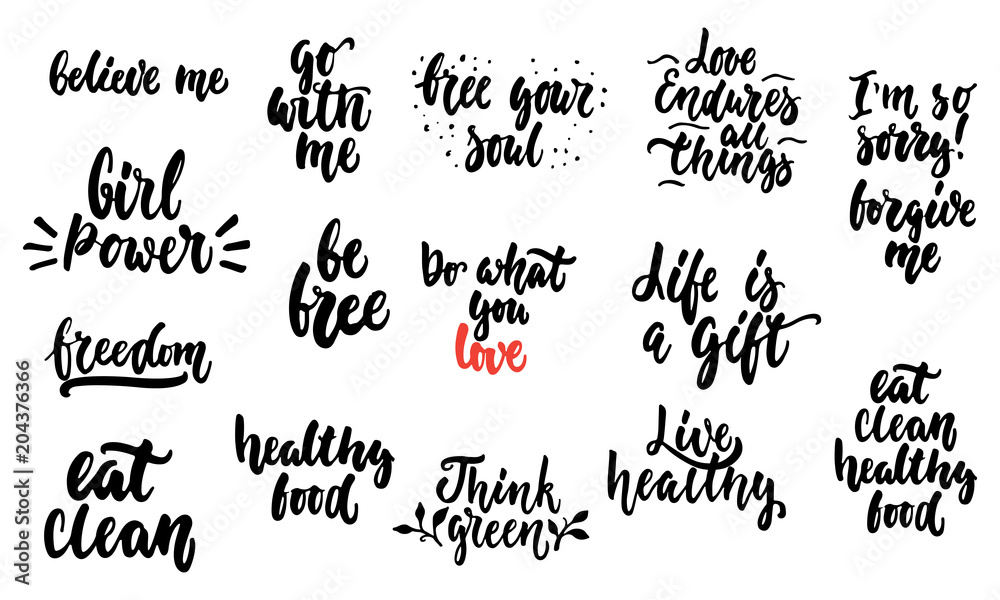 believe me
go
with
me
free your
soul
Love
Endures
all
things
I'm so
sorry!
forgive
me
Girl
Power
be
free
Do what
you
love
Life is
a gift
freedom
eat
clean
healthy
food
eat
clean
healthy
food
Think
green
Live
healthy
Adobe Stock | #204376366